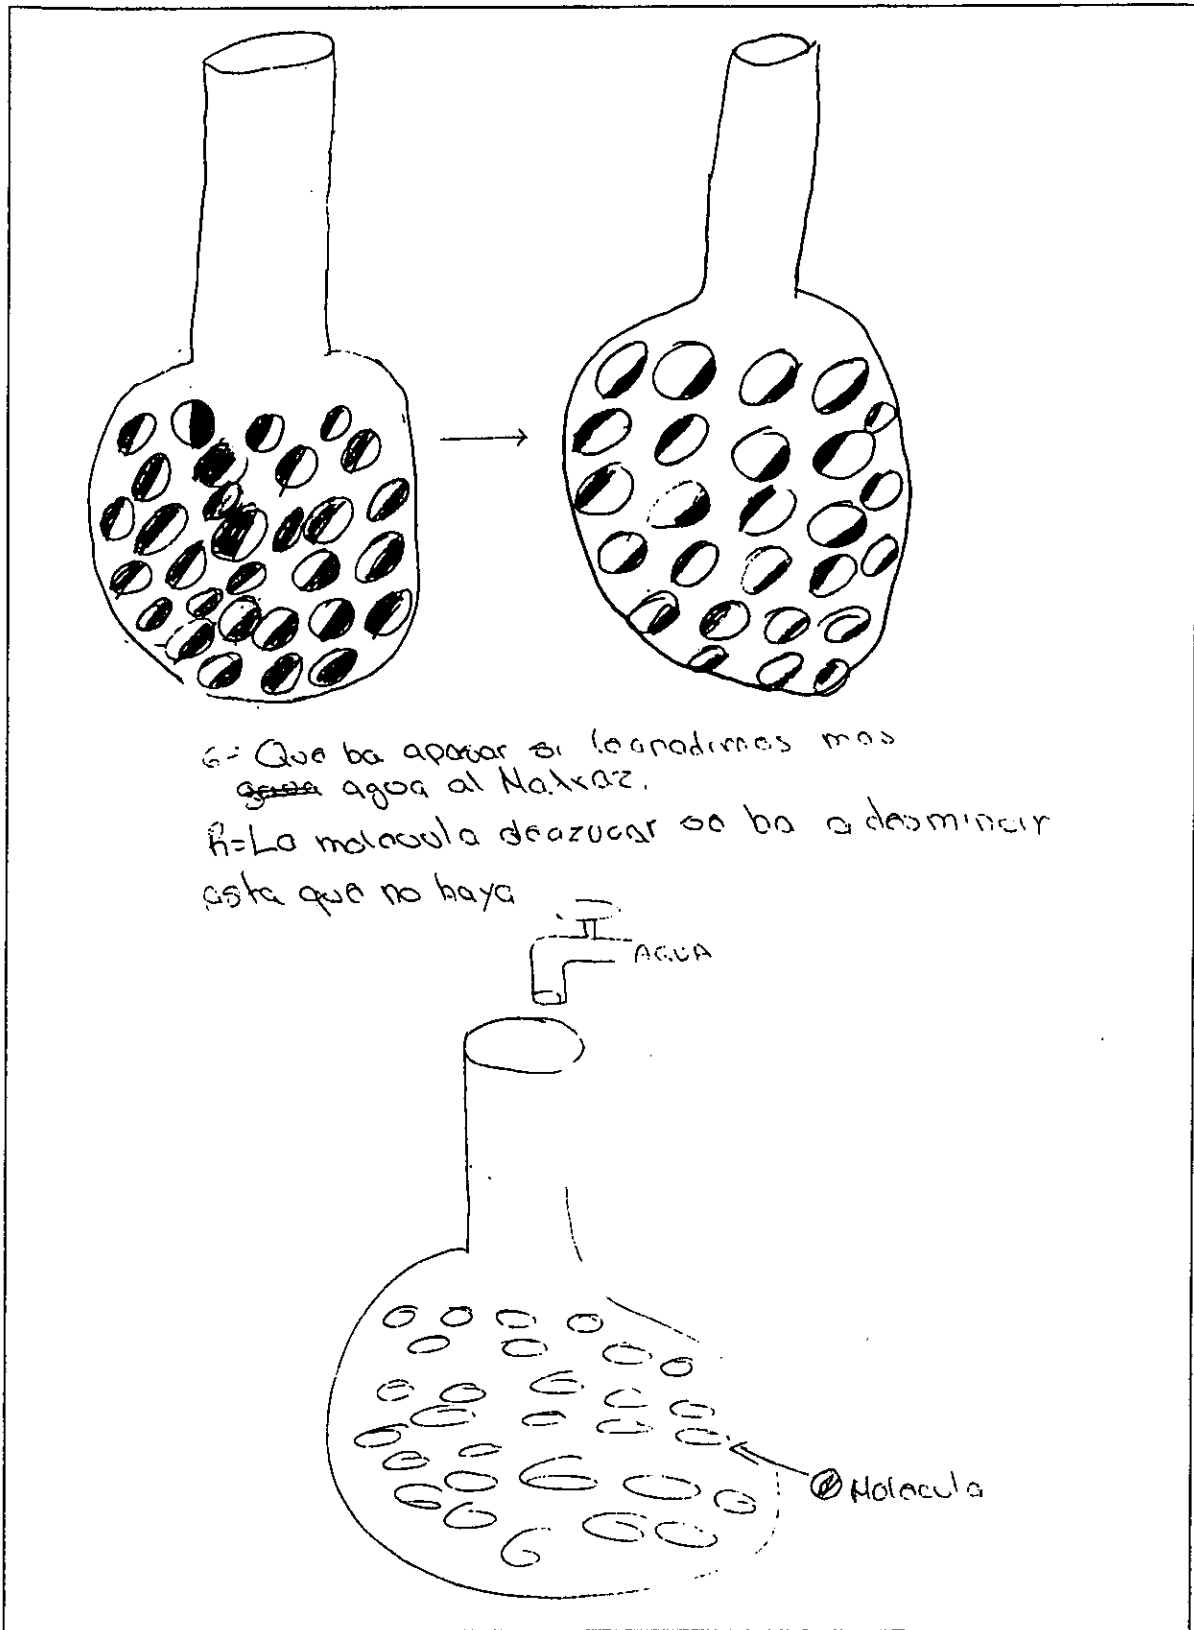 6-- Que ba apasar si leanadimos mas
agua al Matraz.
R=La molecula deazucar se ba a desminuir
asta que no haya
AGUA
Molecula